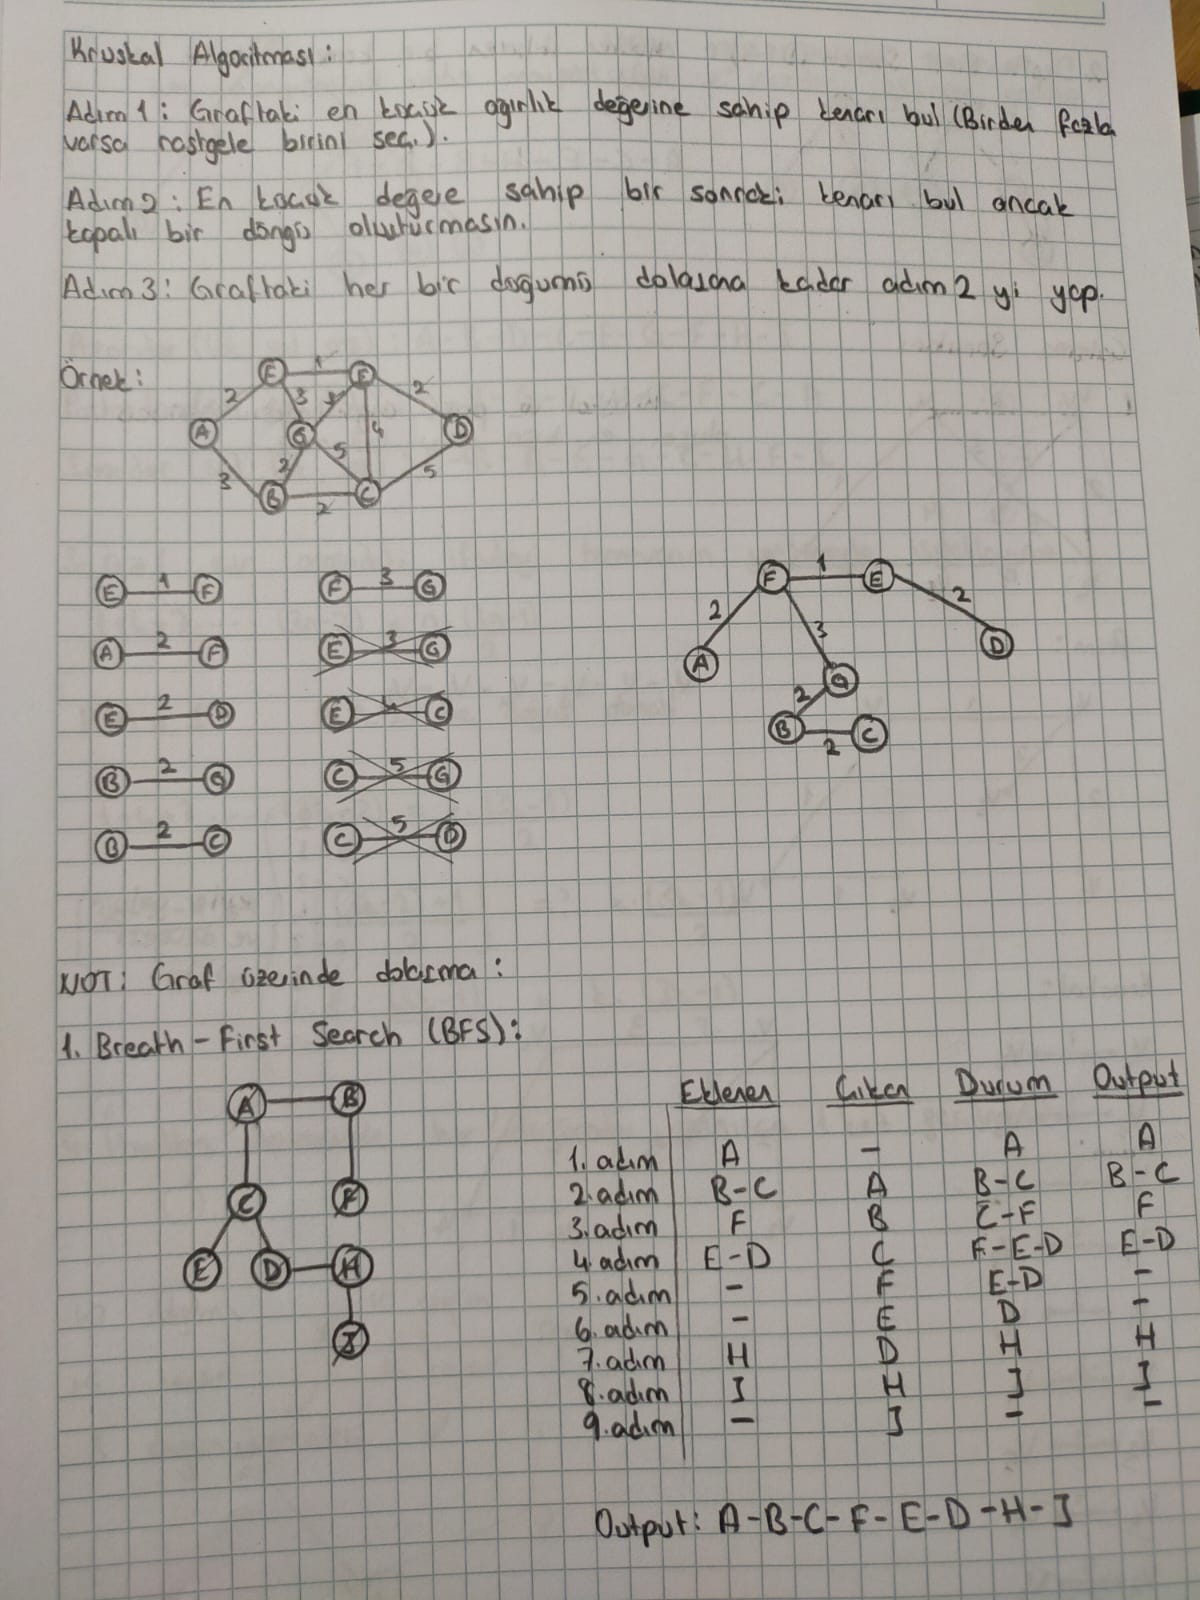 Kruskal Algoritması:
Adım 1: Graftaki en küçük ağırlık değerine sahip kenarı bul (Birden fazla
varsa rastgele birini seç.).
Adım 2: En küçük değere sahip bir sonraki kenarı bul ancak
kapalı bir döngü oluşturmasın.
Adım 3: Graftaki her bir düğümü dolaşana kadar adım 2 yi yap.
Örnek:
E 1 E
2 3 2
A G 4 D
3 2 5 5
B 2 C
E 1 F
F 3 G
A 2 F
E 3 G
E 2 D
E C
B 2 G
C 5 G
B 2 C
C 5 D
F 1 E
2 3 2
A D
G
2
B 2 C
NOT: Graf üzerinde dolaşma:
1. Breath-First Search (BFS):
A B
C F
E D H
J
Eklenen Çıkan Durum Output
1. adım A - A A
2. adım B-C A B-C B-C
3. adım F B C-F F
4. adım E-D C F-E-D E-D
5. adım - F E-D -
6. adım - E D -
7. adım H D H H
8. adım J H J J
9. adım - J - -
Output: A-B-C-F-E-D-H-J